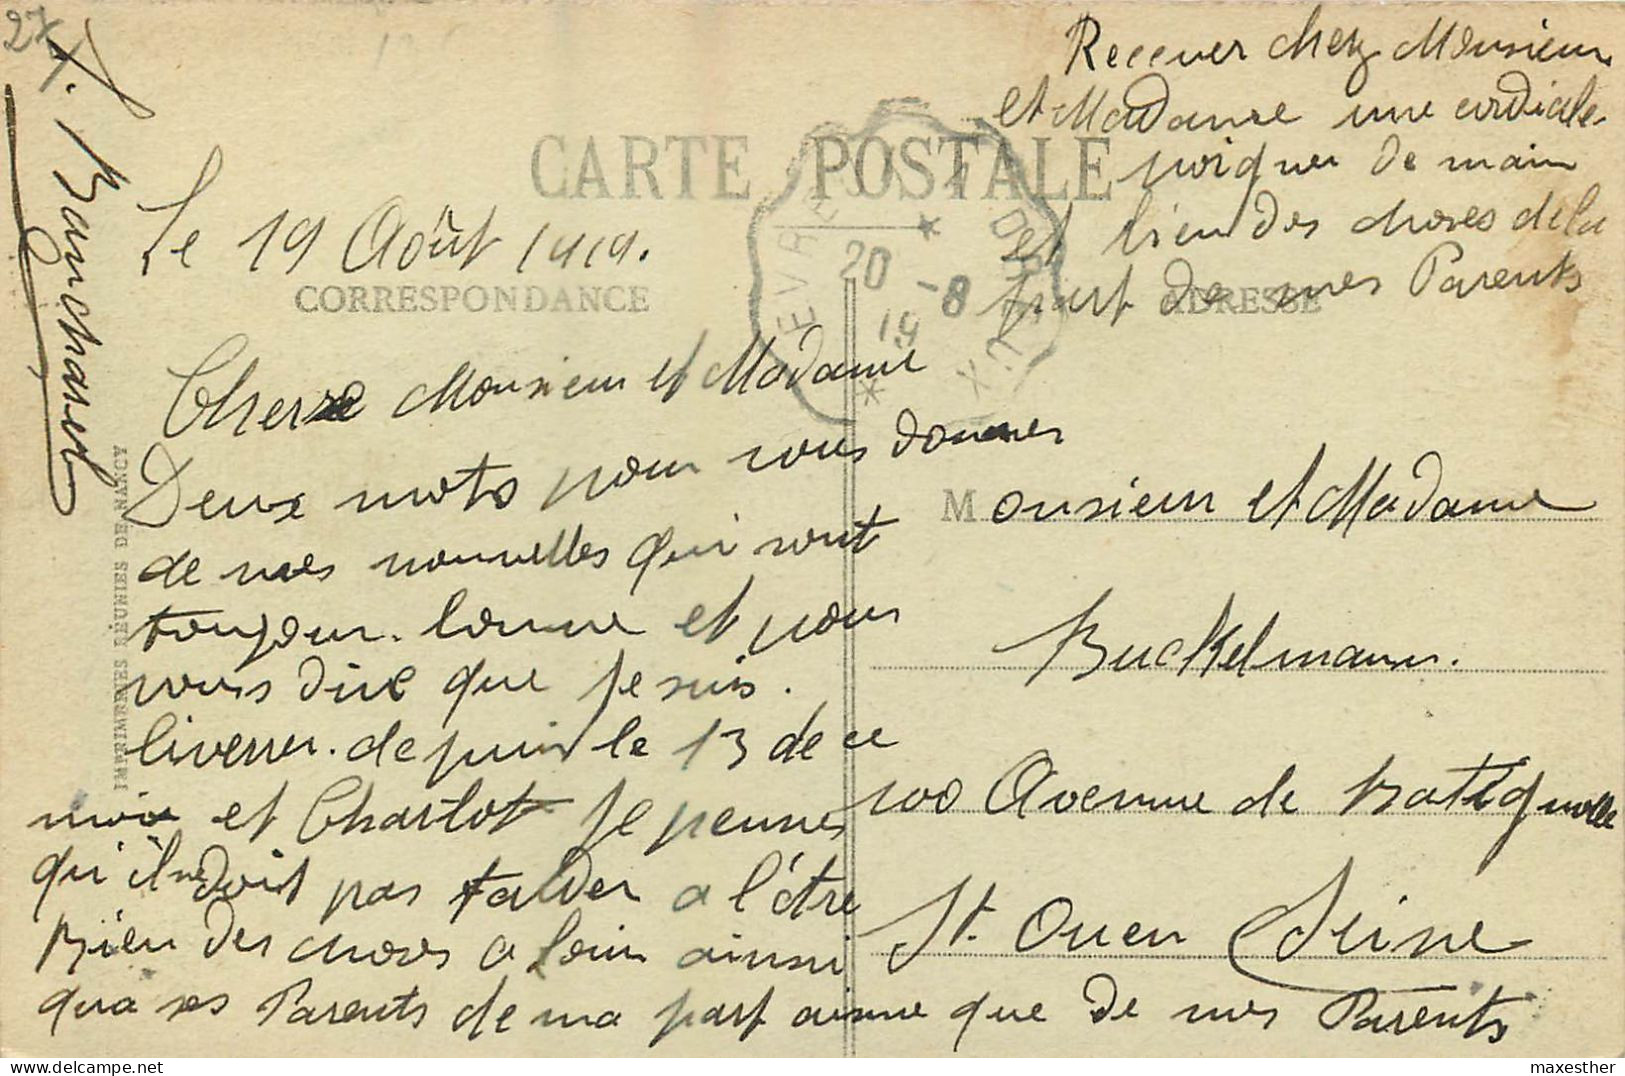 27
CARTE POSTALE
Le 19 Août 1919.
CORRESPONDANCE
Chere Monsieur et Madame
Deux mots pour vous donner
de mes nouvelles qui sont
toujour. bonne et pour
vous dire que je suis.
liverer. depuis le 13 de ce
mois et Charlot je penses
qu'il ne doit pas talder a l'être
Bien des choses a Louis ainsi
qua ses Parents de ma part ainse que de mes Parents
Recever chez Monsieur
et Madame une cordiale
poigner de main
et bien des choses de la
part de mes Parents
ADRESSE
20 -8
19
Monsieur et Madame
Buckelmann.
100 Avenue de Batignolle
St. Ouen Seine
IMPRIMERIES REUNIES DE NANCY
maxesther